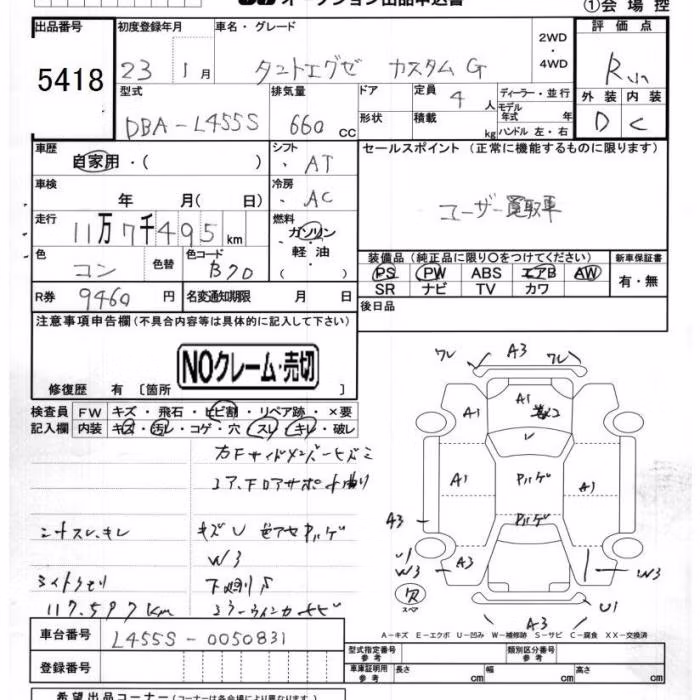 オークション出品申込書
①会場控
出品番号 初度登録年月 車名・グレード 2WD・4WD 評価点
5418 23年 1月 タントエグゼ カスタムG R
型式 排気量 ドア 定員 4人 ディーラー・並行 外装 内装
DBA-L455S 660cc 形状 積載 kg モデル年式 年 ハンドル 左・右 D C
車歴 自家用・( ) シフト ・AT セールスポイント(正常に機能するものに限ります)
車検 年 月(日) 冷房 ・AC ユーザー買取車
走行 11万7千495km 燃料 ガソリン・軽油・( )
色 コン 色替 色コード B70 装備品(純正品に限り○をつけてください) 新車保証書
PS PW ABS エアB AW 有・無
SR ナビ TV カワ
R券 9460円 名変通知期限 月 日 後日品
注意事項申告欄(不具合内容等は具体的に記入して下さい)
NOクレーム・売切
修復歴 有〔箇所 〕
検査員記入欄 FW キズ・飛石・ヒビ割・リペア跡・×要
内装 キズ・汚レ・コゲ・穴・スレ・キレ・破レ
ワレ A3 ワレ
A1 A1 A1
A1 ハゲ A1
ハゲ
A3 U1 W3 A3 W3
欠 スペア A3 U1
シートスレ、キレ キズU
W3
ライトクモリ
117,597km ミラーウインカーサビ
A-キズ E-エクボ U-凹み W-補修跡 S-サビ C-腐食 XX-交換済
車台番号 L455S-0050831
型式指定番号 参考 類別区分番号 参考
登録番号 車庫証明用 参考 長さ cm 幅 cm 高さ cm
希望出品コーナー(コーナーは各会場により異なります)